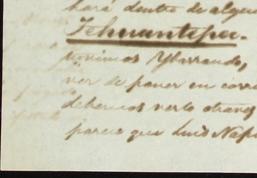 hará dentro de algu
Tehuantepec.
tuvimos Ybarrondo,
ver de poner en corri
debemos verlo otras
parece que Luis Nap